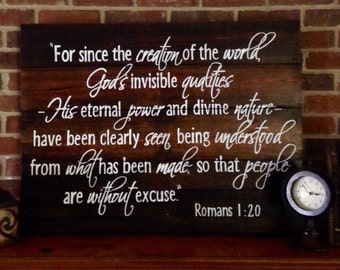 "For since the creation of the world
God's invisible qualities
-His eternal power and divine nature-
have been clearly seen being understood
from what has been made, so that people
are without excuse."
Romans 1:20